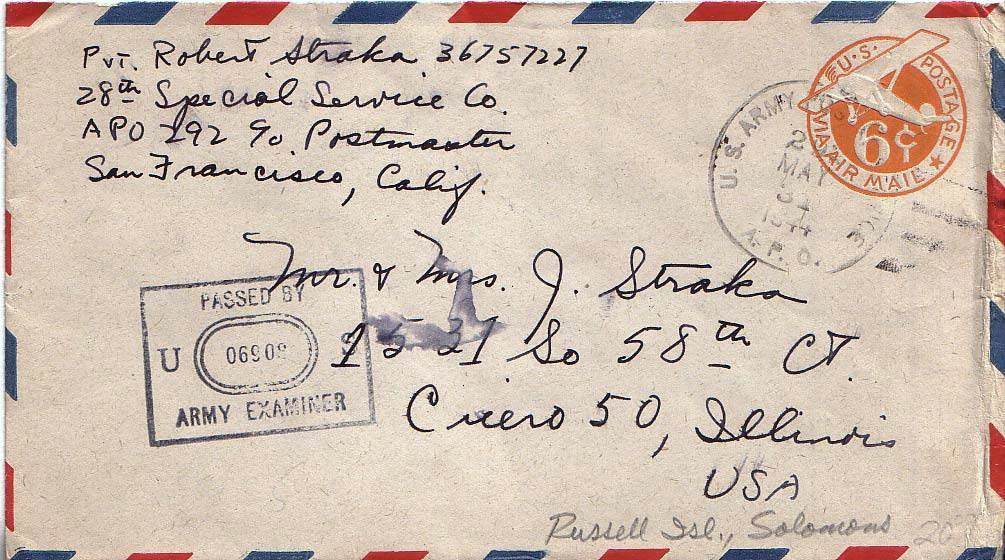 Pvt. Robert Straka 36757227
28th Special Service Co.
APO 292 c/o Postmaster
San Francisco, Calif.
U.S. POSTAGE
6¢
VIA AIR MAIL
U.S. ARMY
MAY
31
1944
A.P.O.
Mr. & Mrs. J. Straka
1531 So 58th Ct.
Cicero 50, Illinois
USA
PASSED BY
U 06908 S
ARMY EXAMINER
Russell Isl., Solomons